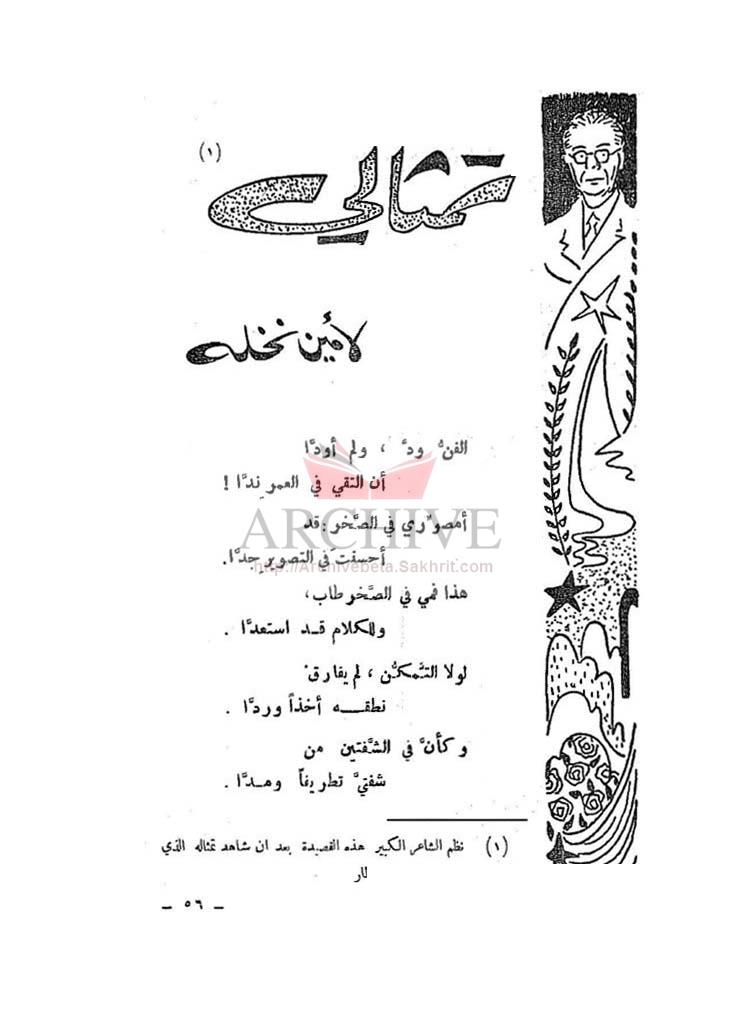 تمثالي (١)
لأمين نخله
الفنُّ ودَّ ، ولم أودَّا
أن التقي في العمر نِدَّا !
أمصوّري في الصَّخر : قد
أحسنتَ في التصوير جدَّا .
هذا فمي في الصَّخر طاب ،
وللكلام قـد استعدَّا .
لولا التَّمكُّن ، لم يفارقْ
نطقـــه أخذاً وردَّا .
وكأنَّ في الشَّفتين من
شفتيَّ تطريفاً ومـدَّا .
(١) نظم الشاعر الكبير هذه القصيدة بعد ان شاهد تمثاله الذي
ـ ٥٦ ـ
ARCHIVE
http://Archivebeta.Sakhrit.com